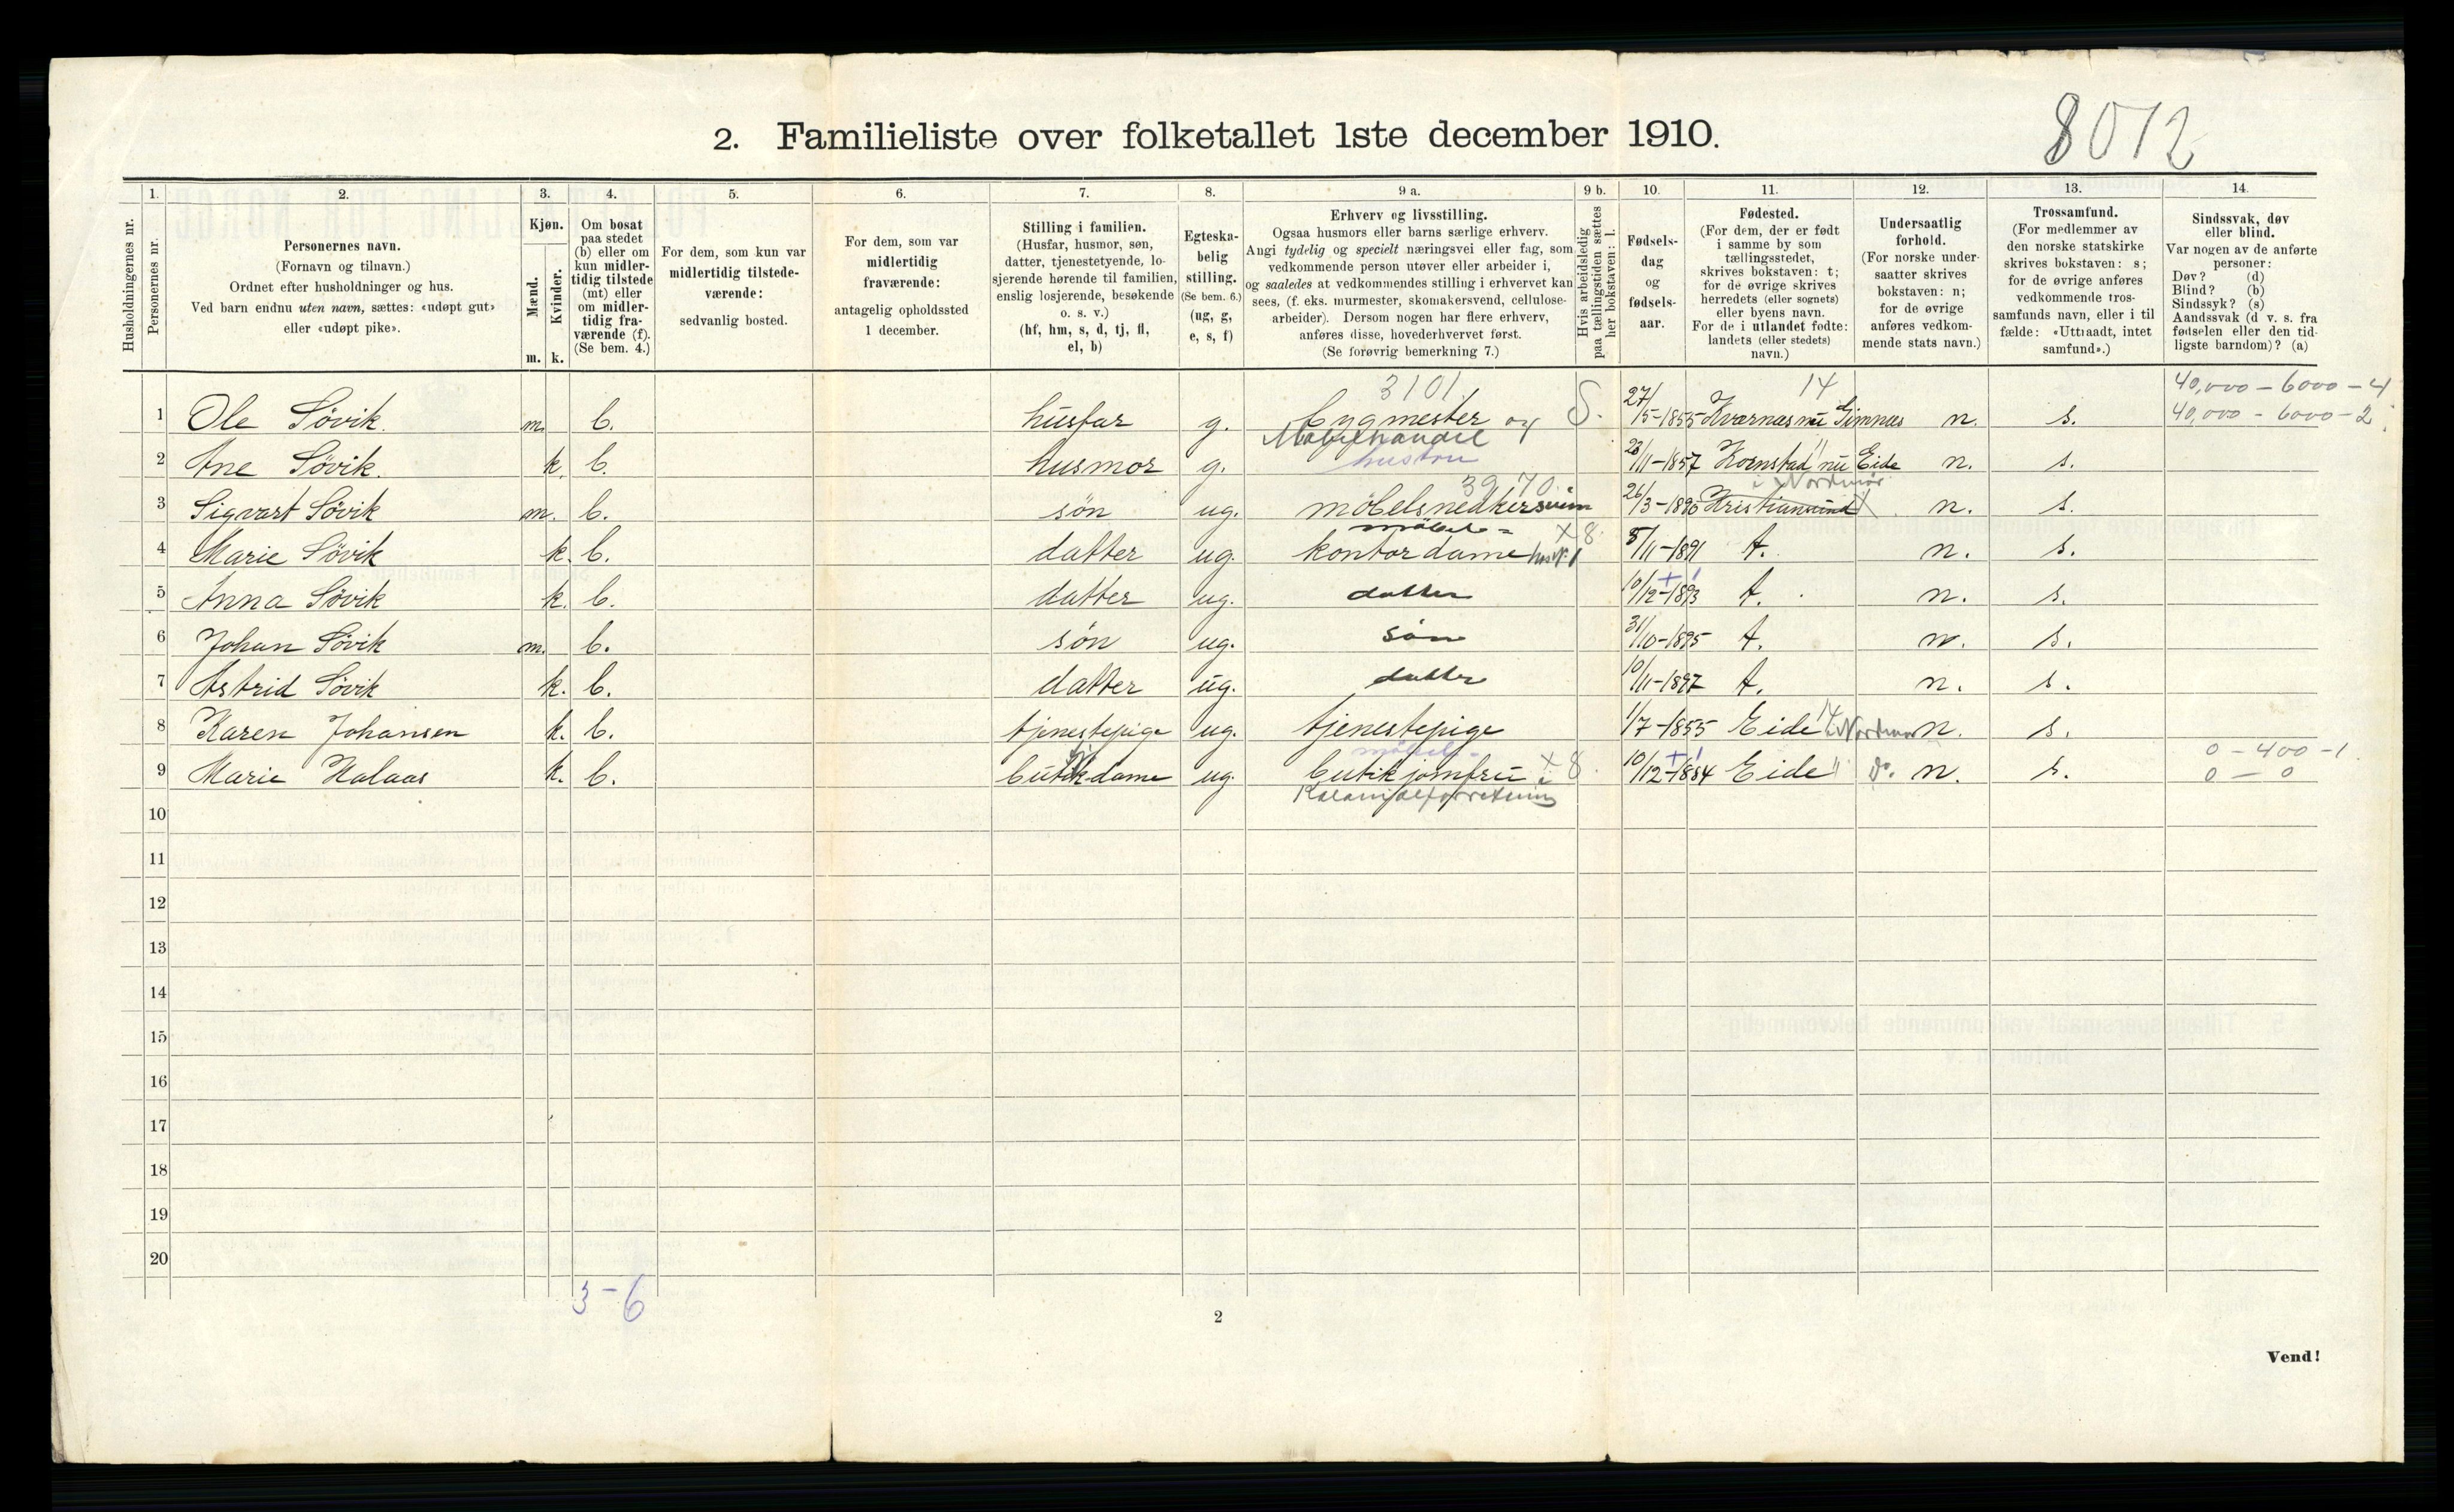 2. Familieliste over folketallet 1ste december 1910.
8072
Husholdningernes nr.
1. Personernes nr.
2. Personernes navn.
(Fornavn og tilnavn.)
Ordnet efter husholdninger og hus.
Ved barn endnu uten navn, sættes: «udøpt gut»
eller «udøpt pike».
3. Kjøn.
Mænd. m.
Kvinder. k.
4. Om bosat
paa stedet
(b) eller om
kun midler-
tidig tilstede
(mt) eller
om midler-
tidig fra-
værende (f).
(Se bem. 4.)
5. For dem, som kun var
midlertidig tilstede-
værende:
sedvanlig bosted.
6. For dem, som var
midlertidig
fraværende:
antagelig opholdssted
1 december.
7. Stilling i familien.
(Husfar, husmor, søn,
datter, tjenestetyende, lo-
sjerende hørende til familien,
enslig losjerende, besøkende
o. s. v.)
(hf, hm, s, d, tj, fl,
el, b)
8. Egteska-
belig
stilling.
(Se bem. 6.)
(ug, g,
e, s, f)
9 a. Erhverv og livsstilling.
Ogsaa husmors eller barns særlige erhverv.
Angi tydelig og specielt næringsvei eller fag, som
vedkommende person utøver eller arbeider i,
og saaledes at vedkommendes stilling i erhvervet kan
sees, (f. eks. murmester, skomakersvend, cellulose-
arbeider). Dersom nogen har flere erhverv,
anføres disse, hovederhvervet først.
(Se forøvrig bemerkning 7.)
9 b. Hvis arbeidsledig
paa tællingstiden sættes
her bokstaven: l.
10. Fødsels-
dag
og
fødsels-
aar.
11. Fødested.
(For dem, der er født
i samme by som
tællingsstedet,
skrives bokstaven: t;
for de øvrige skrives
herredets (eller sognets)
eller byens navn.
For de i utlandet fødte:
landets (eller stedets)
navn.)
12. Undersaatlig
forhold.
(For norske under-
saatter skrives
bokstaven: n;
for de øvrige
anføres vedkom-
mende stats navn.)
13. Trossamfund.
(For medlemmer av
den norske statskirke
skrives bokstaven: s;
for de øvrige anføres
vedkommende tros-
samfunds navn, eller i til
fælde: «Uttraadt, intet
samfund».)
14. Sindssvak, døv
eller blind.
Var nogen av de anførte
personer:
Døv? (d)
Blind? (b)
Sindssyk? (s)
Aandssvak (d v. s. fra
fødselen eller den tid-
ligste barndom)? (a)
3101 14 40,000 - 6000 - 4
1 Ole Søvik. m. b. husfar g. bygmester og S. 27/5-1855 Kvarnes nu Gimnes n. s. 40,000 - 6000 - 2
Møbelhandel
2 Ane Søvik. k. b. husmor g. hustru 23/11-1857 Kornstad nu Eide n. s.
3970 i Nordmør
3 Sigvart Søvik m. b. søn ug. møbelsnedker 26/3-1890 Kristiansund n. s.
møbel= x 8.
4 Marie Søvik k. b. datter ug. kontordame 8/11-1891 t. n. s.
5 Anna Søvik k. b. datter ug. datter 10/12-1893 t. n. s.
6 Johan Søvik m. b. søn ug. søn 31/10-1895 t. n. s.
7 Astrid Søvik k. b. datter ug. datter 10/11-1897 t. n. s.
8 Karen Johansen k. b. tjenestepige ug. tjenestepige 1/7-1855 Eide 14 Nordmør n. s.
møbel= x 8. 0 - 400 - 1
9 Marie Halaas k. b. butikdame ug. butikjomfru i 10/12-1884 Eide do. n. s. 0 - 0
Kolonialforretning
10
11
12
13
14
15
16
17
18
19
20
3-6
2
Vend!